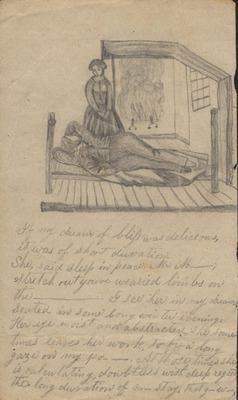 If my dream of bliss was delicious,
it was of short duration.
She, said sleep in peace, Mr M——,
stretch out your wearied limbs on
the ———— I see her in my dreams
seated in some long winter evening.
Her eye moist and abstracted. She some
times leaves her work to fix a long
gaze on my po—. At other times she
is calculating, doubtless with deep regret
the long duration of